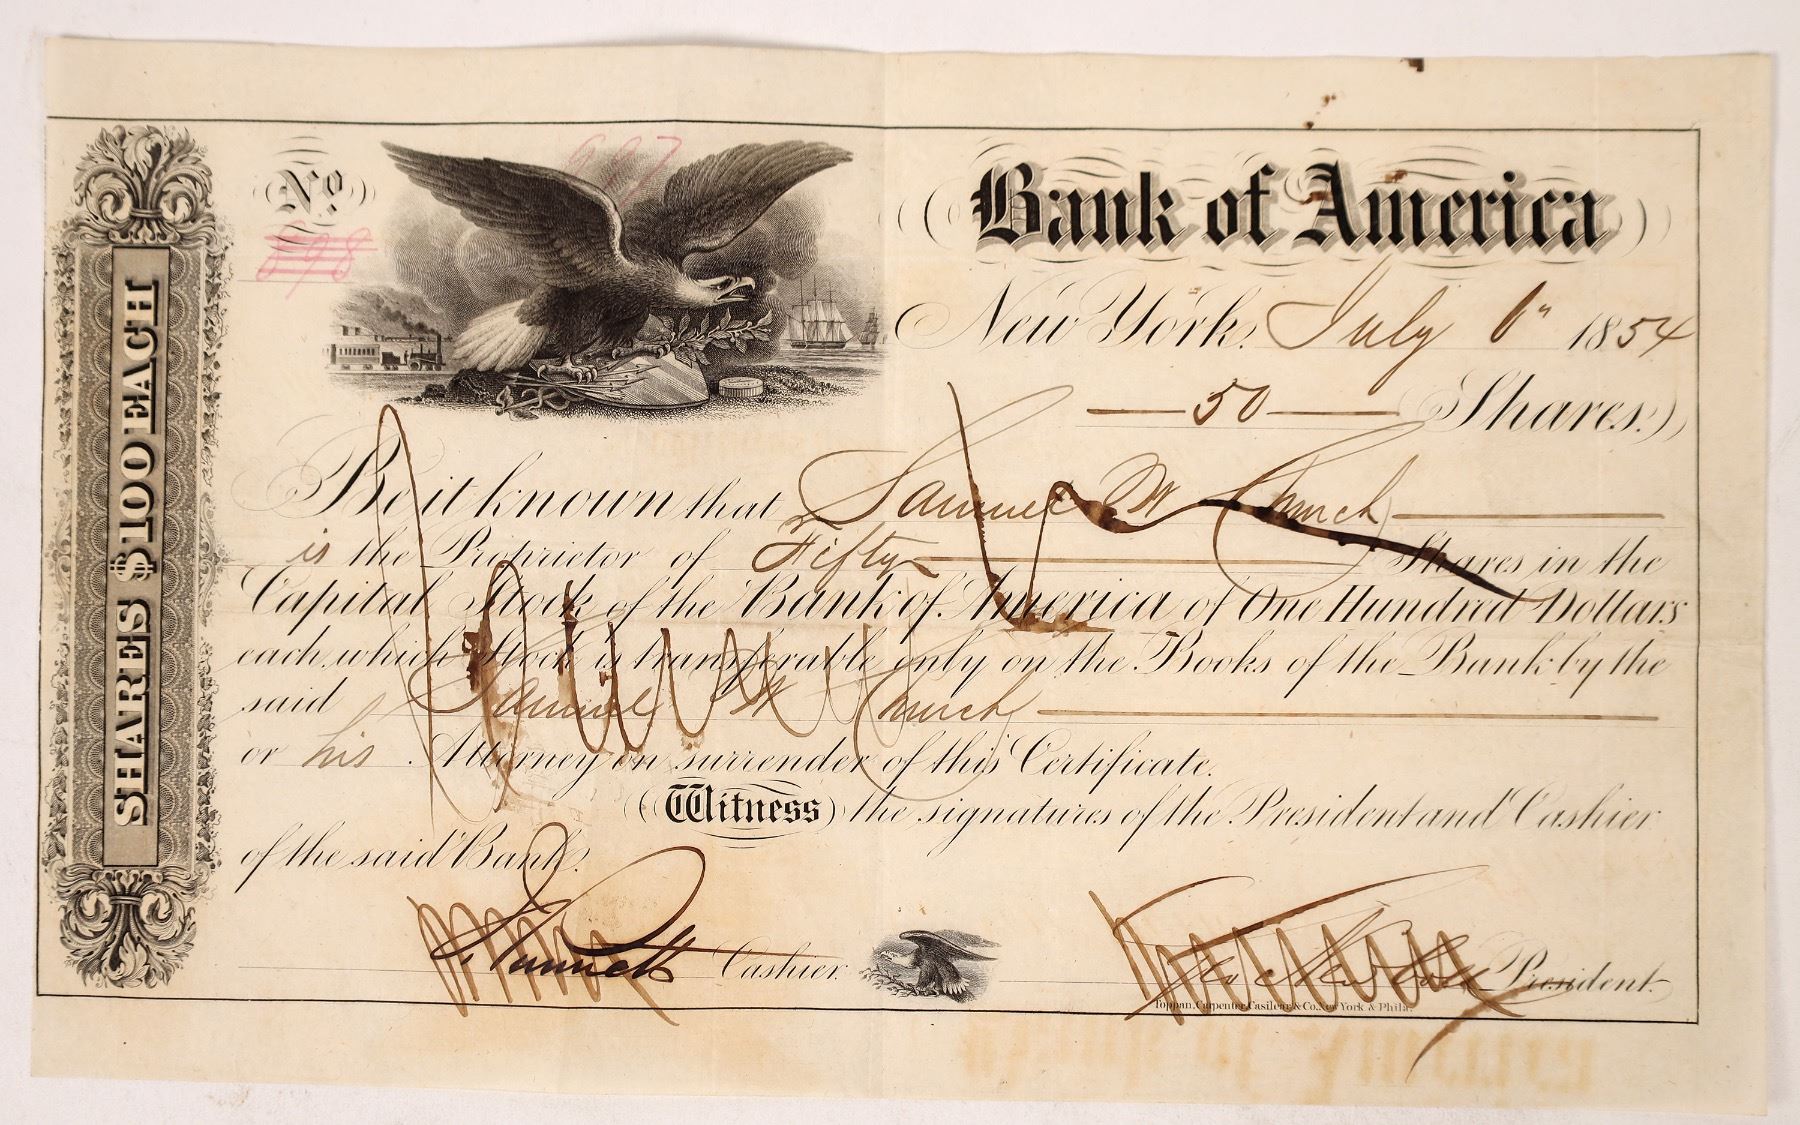 SHARES $100 EACH
No.
897
898
Bank of America
New York, July 6" 1854
50 Shares.
Be it known that Samuel W Church
is the Proprietor of Fifty Shares in the
Capital Stock of the Bank of America of One Hundred Dollars
each, which Stock is transferable only on the Books of the Bank by the
said Samuel W Church
or his Attorney on surrender of this Certificate.
Witness the signatures of the President and Cashier
of the said Bank.
Cashier.
President.
Toppan, Carpenter, Casilear & Co. New York & Phila.